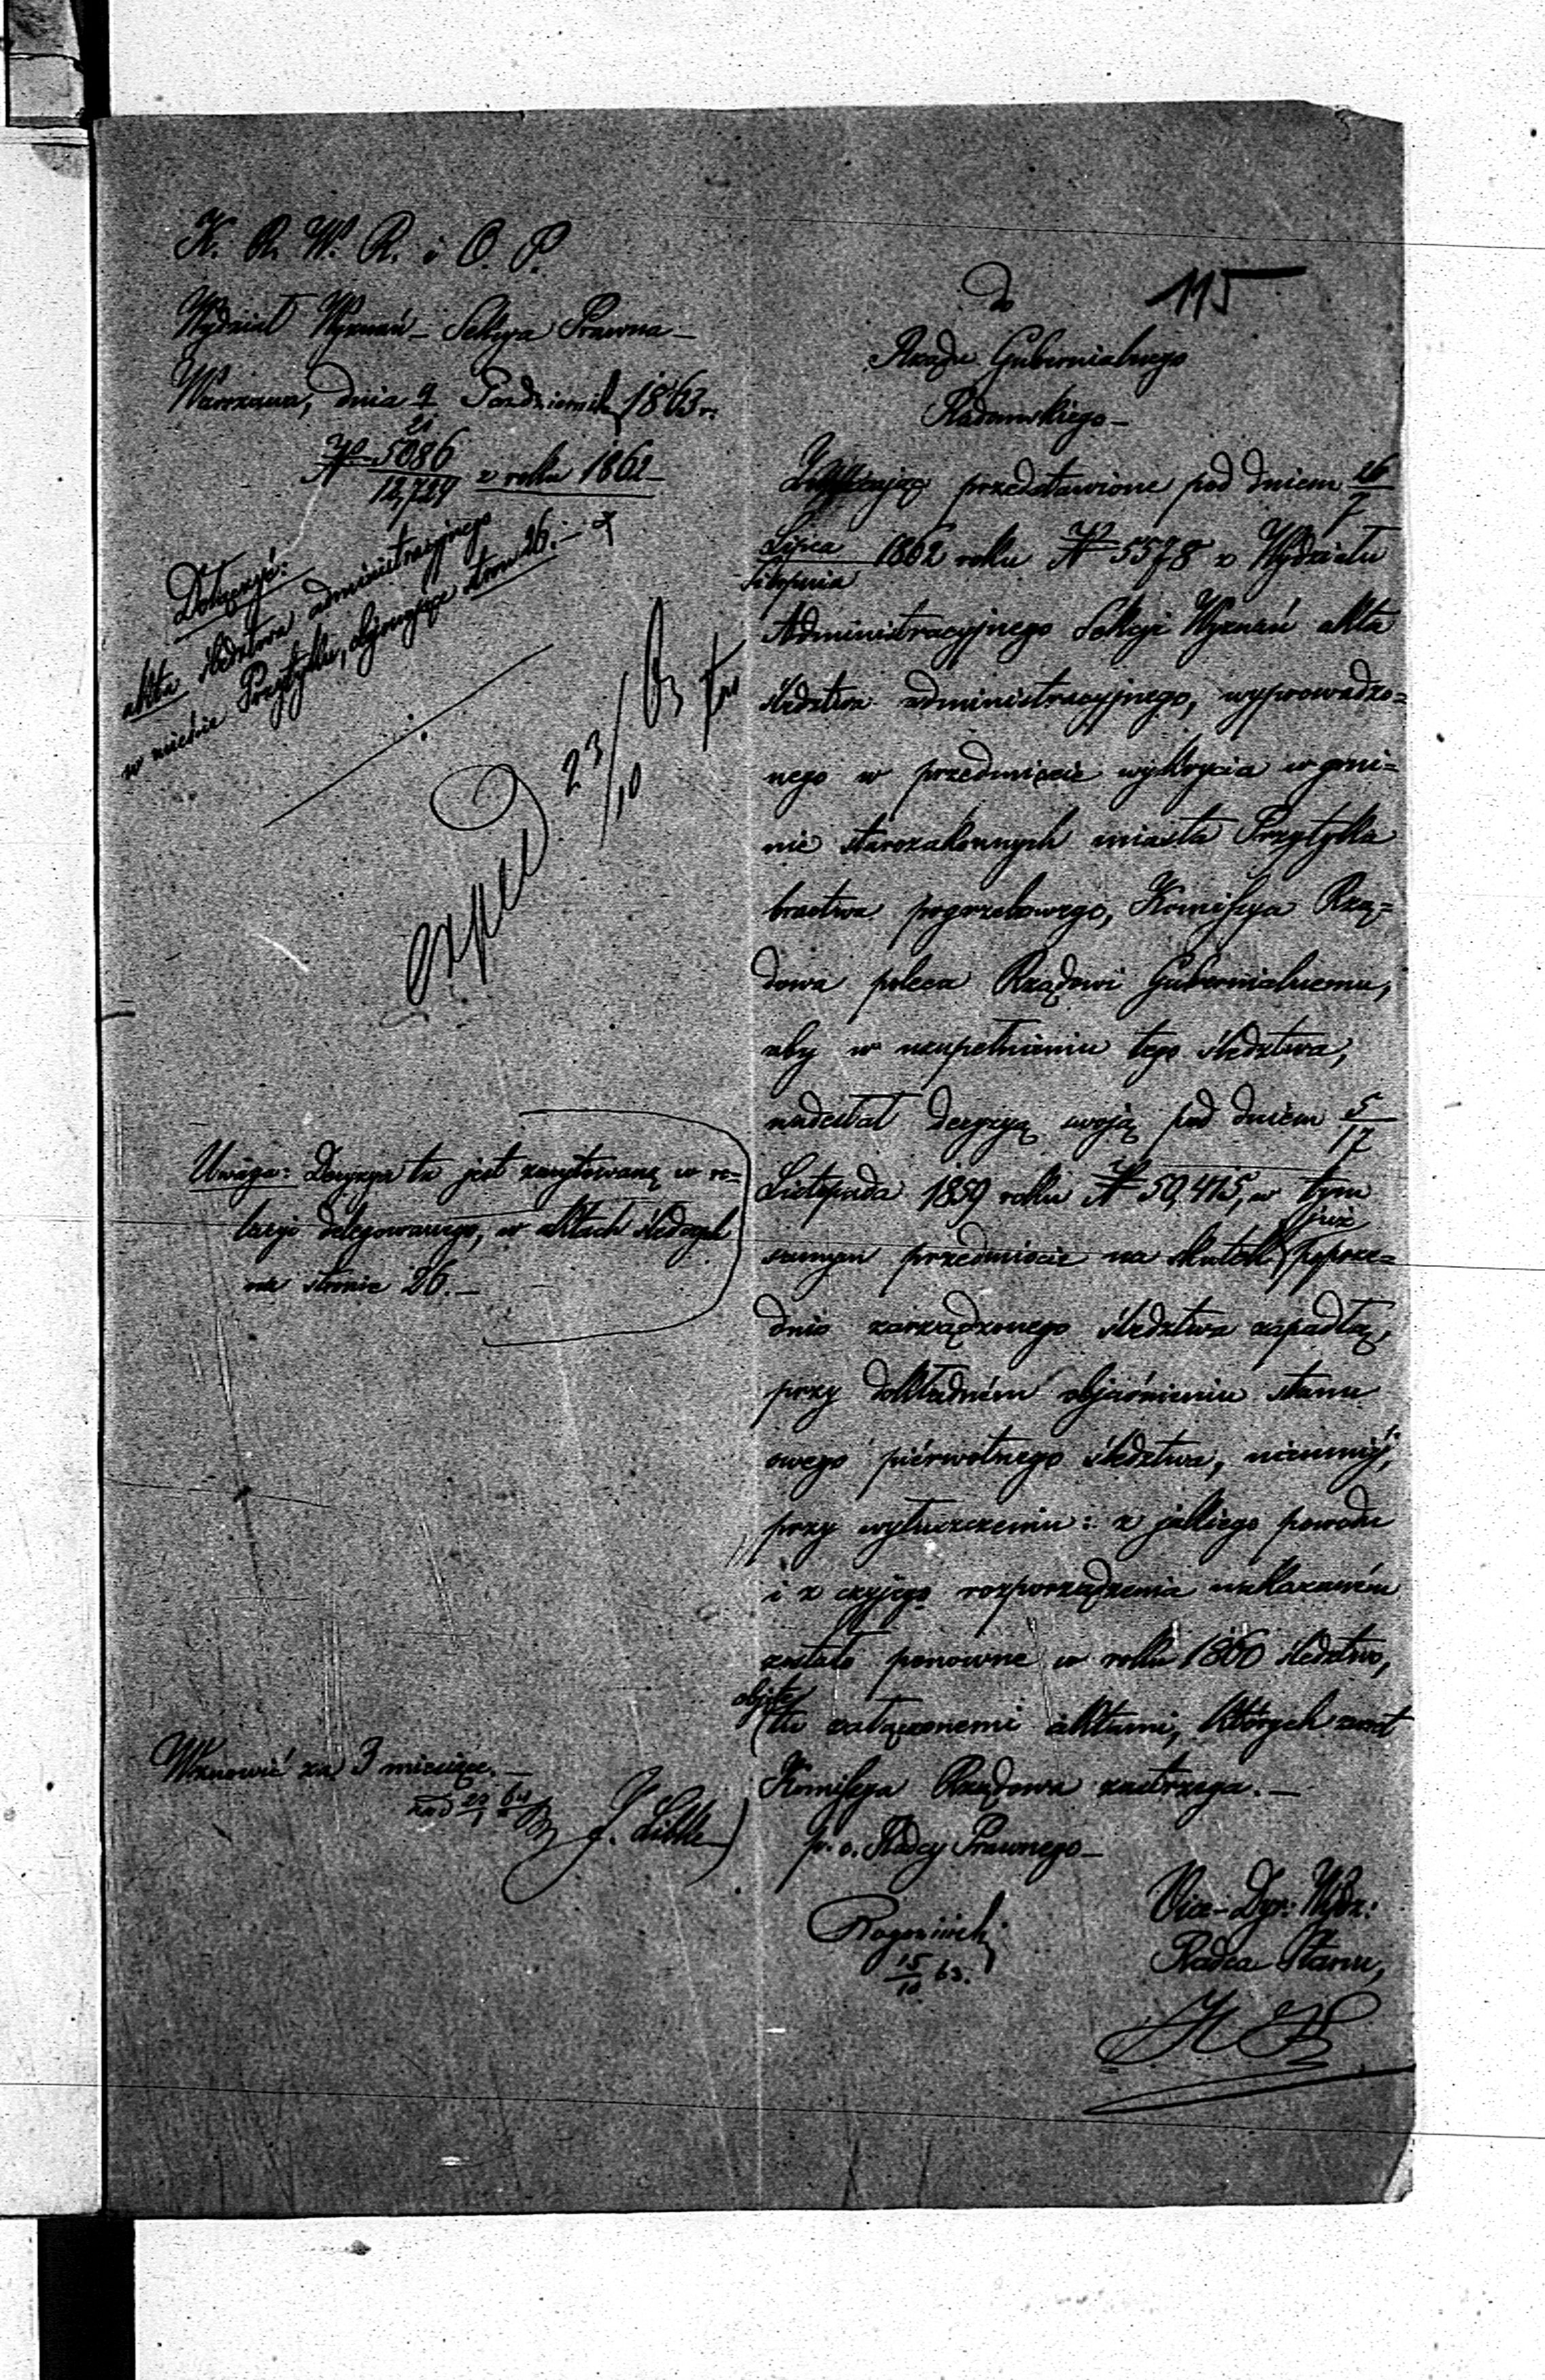 K. R. W. R. i O. P.
Wydział Wyznań – Sekcya Prawna –
Warszawa, dnia 9/21 Październik 1863 r.
№ 5086/12,724 z roku 1862 –
Dołączyć:
akta śledztwa administracyjnego
w mieście Przytyku, obejmujące stron 26. –
exped 23/10 63
Uwaga: Decyzya ta jest zacytowaną w re=
lacyi delegowanego, w aktach śledczych
na stronie 26. –
Wznowić za 3 miesiące. –
115
do
Rządu Gubernialnego
Radomskiego –
przedstawione pod dniem 26/7
Lipca/Sierpnia 1862 roku № 5578 z Wydziału
Administracyjnego Sekcji Wyznań akta
śledztwa administracyjnego, wyprowadzo=
nego w przedmiocie wykrycia w gmi=
nie starozakonnych miasta Przytyka
bractwa pogrzebowego, Komissya Rzą=
dowa poleca Rządowi Gubernialnemu,
aby w uzupełnieniu tego śledztwa,
nadesłał decyzyą swoją pod dniem 5/17
Listopada 1859 roku № 50,415, w tym
samym przedmiocie na skutek już poprze=
dnio zarządzonego śledztwa zapadłą,
przy dokładném objaśnieniu stanu
owego piérwotnego śledztwa, niemniéj,
przy wytłuszczeniu: z jakiego powodu
i z czyjego rozporządzenia nakazaném
zostało ponowne w roku 1860 śledztwo,
objęte tu załączonemi aktami, których zwrot
Komissya Rządowa zastrzega. –
p. o. Radcy Prawnego –
15/10 63.
Vice-Dyr: Wydz:
Radca Stanu,